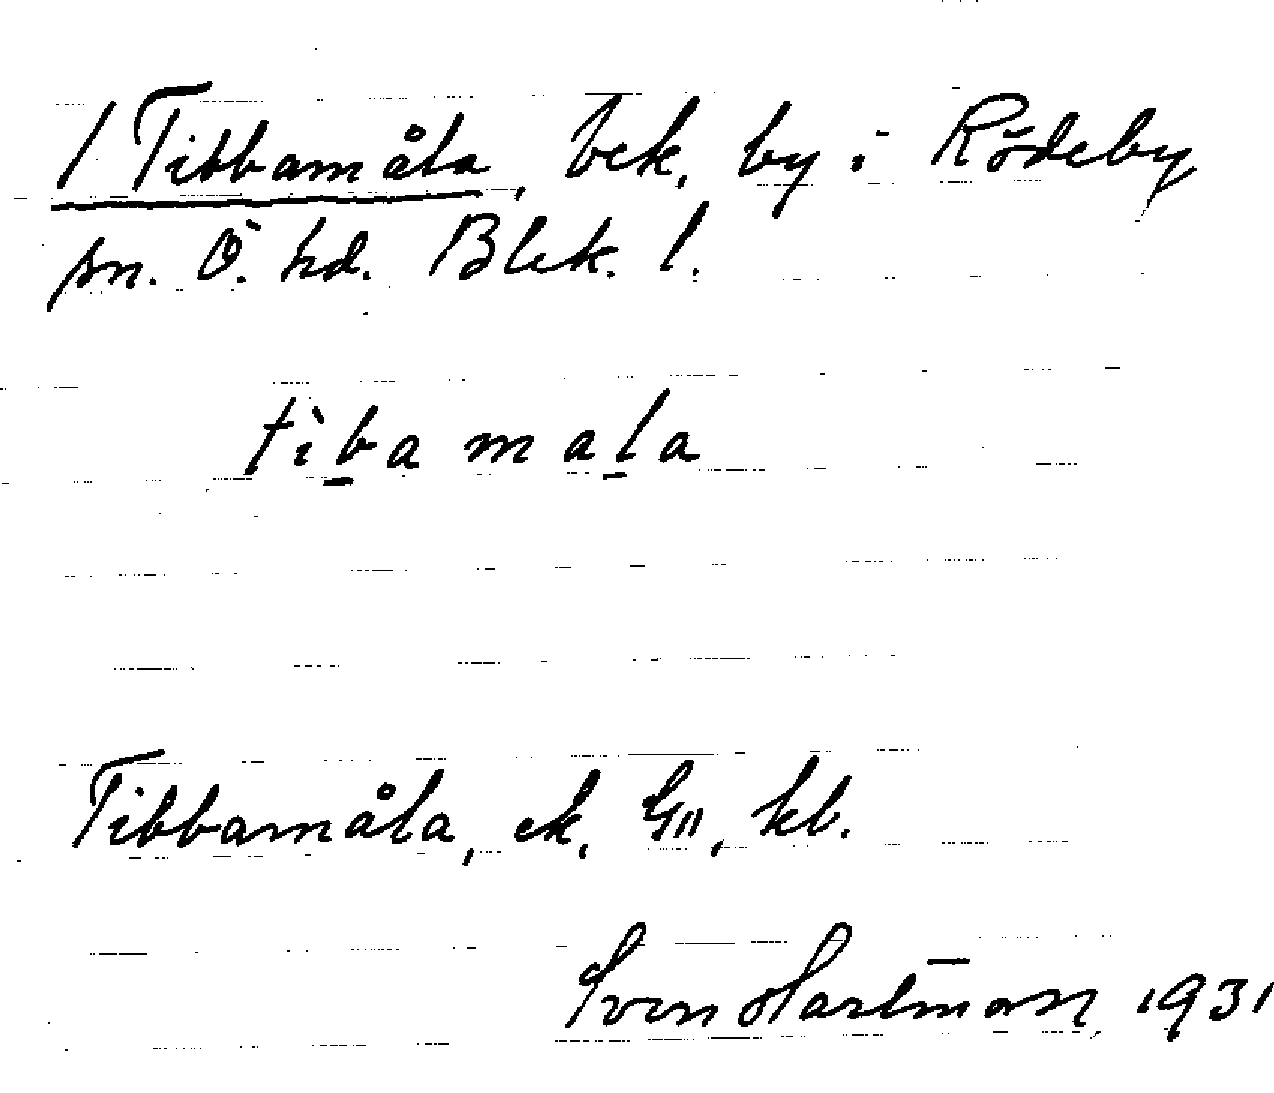 / Tibbamåla, bek. by i Rödeby
sn. Ö. hd. Blek. l.
tìba mala
Tibbamåla, ek. GII, kb.
Sven Hartman 1931